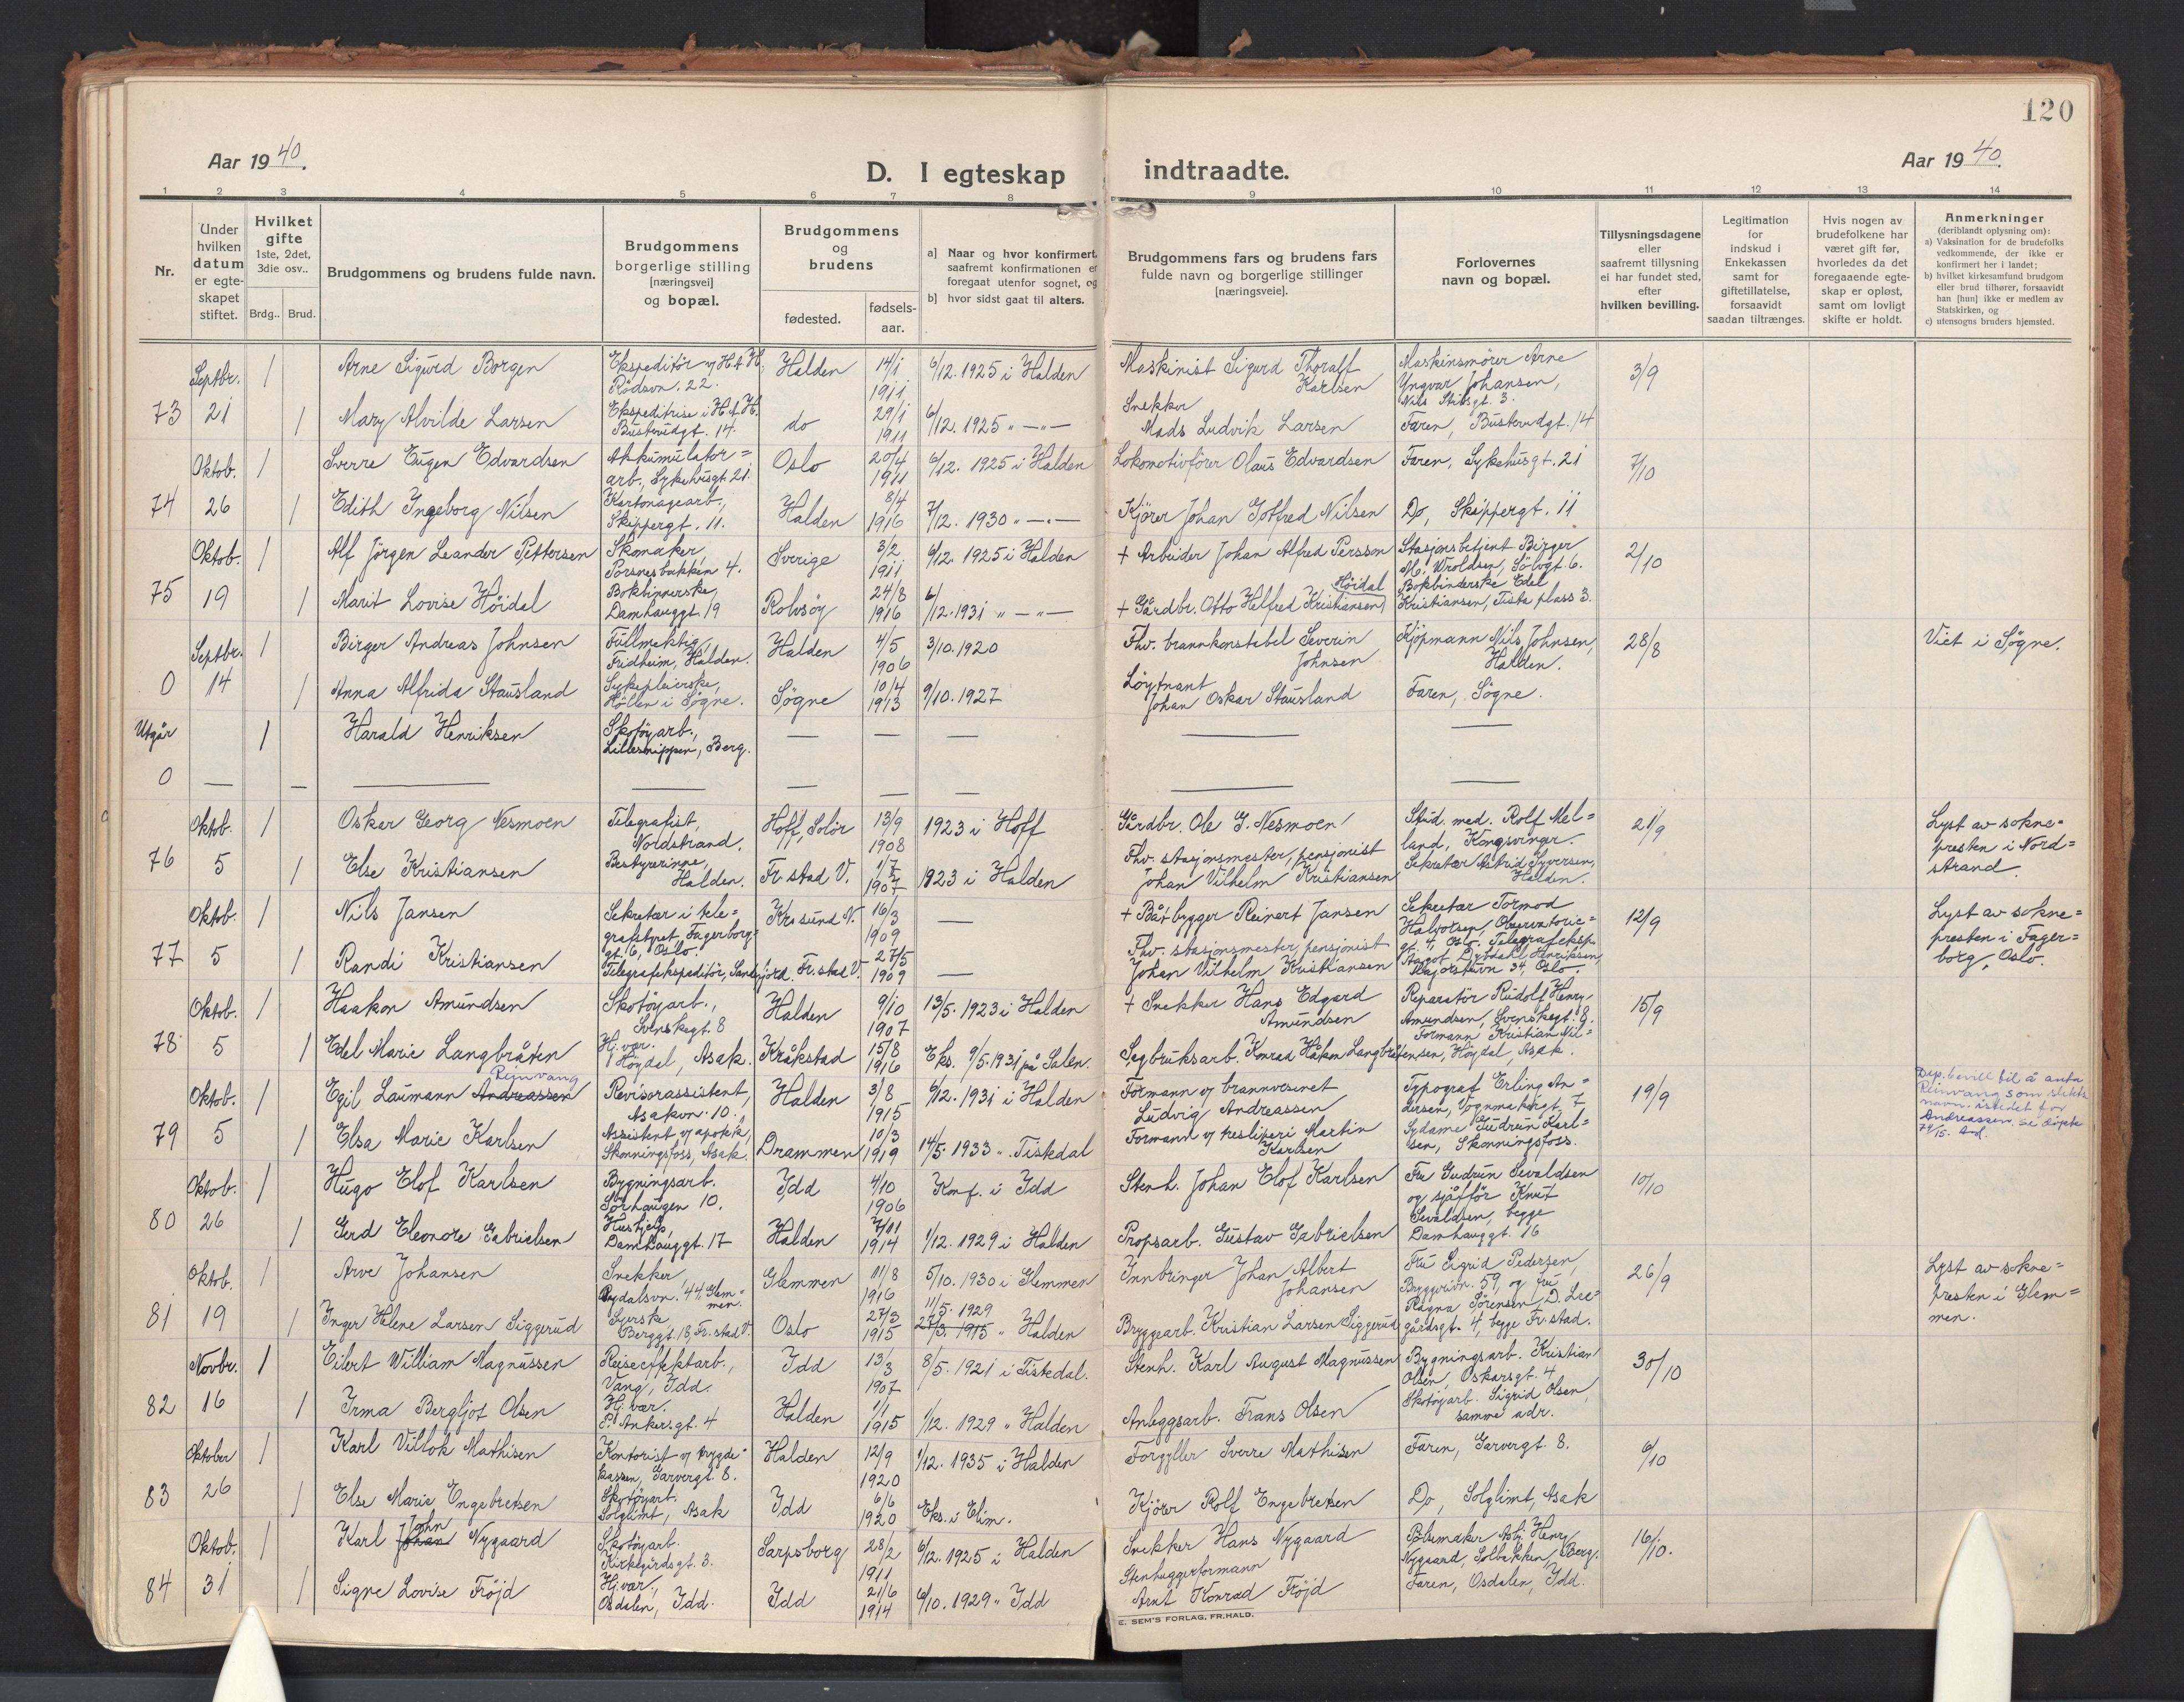 120
Aar 1940.
D. I egteskap indtraadte.
Aar 1940.
1 2 3 4 5 6 7 8 9 10 11 12 13 14
Nr.
Under hvilken datum er egteskapet stiftet.
Hvilket gifte 1ste, 2det, 3die osv..
Brdg.. Brud.
Brudgommens og brudens fulde navn.
Brudgommens borgerlige stilling [næringsvei] og bopæl.
Brudgommens og brudens
fødested.
fødsels-aar.
a] Naar og hvor konfirmert, saafremt konfirmationen er foregaat utenfor sognet, og
b] hvor sidst gaat til alters.
Brudgommens fars og brudens fars fulde navn og borgerlige stillinger [næringsveie].
Forlovernes navn og bopæl.
Tillysningsdagene eller saafremt tillysning ei har fundet sted, efter hvilken bevilling.
Legitimation for indskud i Enkekassen samt for giftetillatelse, forsaavidt saadan tiltrænges.
Hvis nogen av brudefolkene har været gift før, hvorledes da det foregaaende egteskap er opløst, samt om lovligt skifte er holdt.
Anmerkninger (deriblandt oplysning om):
a) Vaksination for de brudefolks vedkommende, der ikke er konfirmert her i landet;
b) hvilket kirkesamfund brudgom eller brud tilhører, forsaavidt han [hun] ikke er medlem av Statskirken, og
c) utensogns bruders hjemsted.
Septbr. 1 Arne Sigurd Borgen Ekspeditör v/ H.A.H., Rödsvn. 22. Halden 14/1 1911 6/12. 1925 i Halden Maskinist Sigurd Thoralf Karlsen Maskinsmörer Arne Yngvar Johansen, Nils Stibsgt. 3. 3/9
73 21 1 Mary Alvilde Larsen Ekspeditrise i H.A.H. Busterudgt. 14. do 29/1 1911 6/12. 1925 " — " — Snekker Mads Ludvik Larsen Faren, Busterudgt. 14
Oktob. 1 Sverre Eugen Edvardsen Akkumulator=arb., Sykehusgt. 21. Oslo 20/4 1911 6/12. 1925 i Halden Lokomotivförer Olaus Edvardsen Faren, Sykehusgt. 21 7/10
74 26 1 Edith Ingeborg Nilsen Kartonagearb., Skippergt. 11. Halden 8/4 1916 7/12. 1930 " — " — Kjörer Johan Gotfred Nilsen Do, Skippergt. 11
Oktob. 1 Alf Jörgen Leander Pettersen Skomaker, Porsnesbakken 4. Sverige 3/2 1911 6/12. 1925 i Halden + Arbeider Johan Alfred Persson Stasjonsbetjent Birger M. Wroldsen, Sölvgt. 6. 2/10
75 19 1 Marit Lovise Höidal Bokbinnerske, Damhauggt. 19 Rolvsöy 24/8 1916 6/12. 1931 " — " — + Gårdbr. Otto Helfred Kristiansen Höidal Bokbinderske Edel Kristiansen, Tista plass 3.
Septbr. 1 Birger Andreas Johnsen Fullmektig, Fridheim, Halden. Halden 4/5 1906 3/10. 1920 Fhv. brannkonstabel Severin Johnsen Kjöpmann Nils Johnsen, Halden. 28/8 Viet i Søgne.
0 14 1 Anna Alfrida Stausland Sykepleierske, Höllen i Søgne. Søgne 10/4 1913 9/10. 1927 Löytnant Johan Oskar Stausland Faren, Søgne.
Utgår 1 Harald Henriksen Skotöyarb., Lillesnippen, Berg. — — — — —
0 — — — — — — — — —
Oktob. 1 Oskar Georg Nesmoen Telegrafist, Nordstrand. Hoff, Solör 13/9 1908 1923 i Hoff Gårdbr. Ole G. Nesmoen Stud. med. Rolf Melland, Kongsvinger. 21/9 Lyst av sokne=presten i Nord=strand.
76 5 1 Else Kristiansen Bestyrerinne, Halden. Fr.stad V. 1/7 1907 1923 i Halden Fhv. stasjonsmester, pensjonist Johan Vilhelm Kristiansen Sekretær Astrid Syversen, Halden.
Oktob. 1 Nils Jansen Sekretær i tele=grafstyret, Fagerborg=gt. 16, Oslo. Kr.sund N. 16/3 1909 — + Båtbygger Reinert Jansen Sekretær Tormod Halvorsen, Observatorie=gt. 4, Oslo. 12/9 Lyst av sokne=presten i Fager=borg, Oslo.
77 5 1 Randi Kristiansen Telegrafekspeditör, Sandefjord. Fr.stad V. 27/5 1909 — Fhv. stasjonsmester, pensjonist Johan Vilhelm Kristiansen Telegrafeksp. Aagot Dybdahl Henriksen, Majorstuvn 34, Oslo.
Oktob. 1 Haakon Amundsen Skotöyarb., Svenskegt. 8 Halden 9/10 1907 13/5. 1923 i Halden + Snekker Hans Edgard Amundsen Reparatör Rudolf Henry Amundsen, Svenskegt. 8. 15/9
78 5 1 Edel Marie Langbråten Hj. vær. Höydal, Asak. Kråkstad 15/8 1916 Eks. 9/5. 1931 på Salen. Sagbruksarb. Konrad Håkon Langbråten Formann Kristian Nilsen, Höydal, Asak.
Oktob. 1 Egil Laumann Andreassen Reinvang Revisorassistent, Asakvn. 10. Halden 3/8 1915 6/12. 1931 i Halden Formann v/ brannvesenet Ludvig Andreassen Typograf Erling An=dersen, Vognmakergt. 7 19/9 Dep. bevill. til å anta Reinvang som slekts navn istedet for Andreassen. Se döpte 74/15.
79 5 1 Elsa Marie Karlsen Assistent v/ apotek, Skonningsfoss, Asak. Drammen 10/3 1919 14/5. 1933 " Tistedal Formann v/ tresliperi Martin Karlsen Sydame Gudrun Karl=sen, Skonningsfoss.
Oktob. 1 Hugo Elof Karlsen Bygningsarb. Sörhaugen 10. Idd 4/10 1906 Konf. i Idd Stenh. Johan Elof Karlsen Fru Gudrun Sevaldsen og sjåför Knut Sevaldsen, begge Damhauggt. 16 10/10
80 26 1 Gerd Eleonore Gabrielsen Hushjelp, Damhauggt. 17 Halden 7/11 1914 1/12. 1929 i Halden Propsarb. Gustav Gabrielsen
Oktob. 1 Arve Johansen Snekker, Rydalsvn. 44, Glem=men. Glemmen 11/8 1916 5/10. 1930 i Glemmen Innbringer Johan Albert Johansen Fru Sigrid Pedersen, Bryggerivn. 59, og fru Ragna Sörensen, D. Lee=gårdsgt. 4, begge Fr.stad. 26/9 Lyst av sokne=presten i Glem=men.
81 19 1 Inger Helene Larsen Siggerud Syerske Berggt. 18, Fr.stad V. Oslo 27/3 1915 11/5. 1929 27/3. 1915 " Halden Bryggearb. Kristian Larsen Siggerud
Novbr. 1 Eilert William Magnussen Reiseeffektarb., Vang, Idd. Idd 13/3 1907 8/5. 1921 i Tistedal. Stenh. Karl August Magnussen Bygningsarb. Kristian Olsen, Oskarsgt. 4 30/10
82 16 1 Irma Bergljot Olsen Hj. vær. P. Ankersgt. 4 Halden 1/1 1915 1/12. 1929 " Halden Anleggsarb. Frans Olsen Skotöyarb. Sigrid Olsen, samme adr.
Oktober 1 Karl Villok Mathisen Kontorist v/ trygde=kassen, Garvergt. 8. Halden 12/9 1920 1/12. 1935 i Halden Forgyller Sverre Mathisen Faren, Garvergt. 8. 6/10
83 26 1 Else Marie Engebretsen Skotöyarb. Solglimt, Asak Idd 6/6 1920 Eks. i Elim. Kjörer Rolf Engebretsen Do, Solglimt, Asak
Oktob. 1 Karl Johan John Nygaard Skotöyarb. Kirkegårdsgt. 3. Sarpsborg 28/2 1911 6/12. 1925 i Halden Snekker Hans Nygaard Henry Nygaard, Solbakken, Berg. 16/10.
84 31 1 Signe Lovise Fröjd Hj. vær., Osdalen, Idd. Idd 21/6 1914 6/10. 1929 " Idd Stenhuggerformann Arnt Konrad Fröjd Faren, Osdalen, Idd.
E. SEM'S FORLAG, FR.HALD.